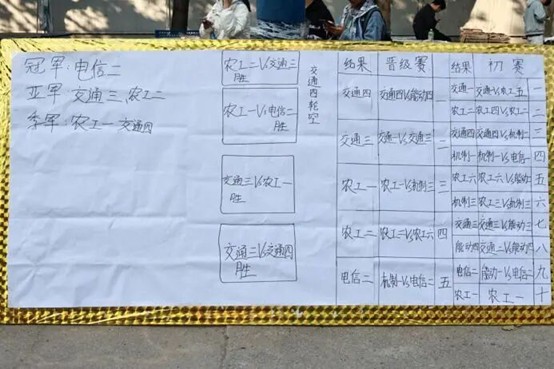 冠军:电信二
亚军 交通三、农工二
季军:农工一 交通四
农工二VS交通三
胜
农工一VS电信二
胜
交通三VS农工一
胜
交通三VS交通四
胜
交通四轮空
结果 晋级赛
交通四 交通四VS能动四 一
交通三 交通VS交通三 二
农工一 农工一VS机制三 三
农工二 农工二VS农工六 四
电信二 机制一VS电信二 五
结果 初赛
交通一 交通一VS农工五 一
农工二 农工四VS农工二 二
交通四 交通四VS机制 三
机制一 机制一VS电信一 四
农工六 农工六VS能动 五
机制三 农工三VS机制三 六
交通三 交通三VS能动三 七
能动四 交通二VS能动四 八
电信二 能动一VS电信二 九
农工一 农工一 十